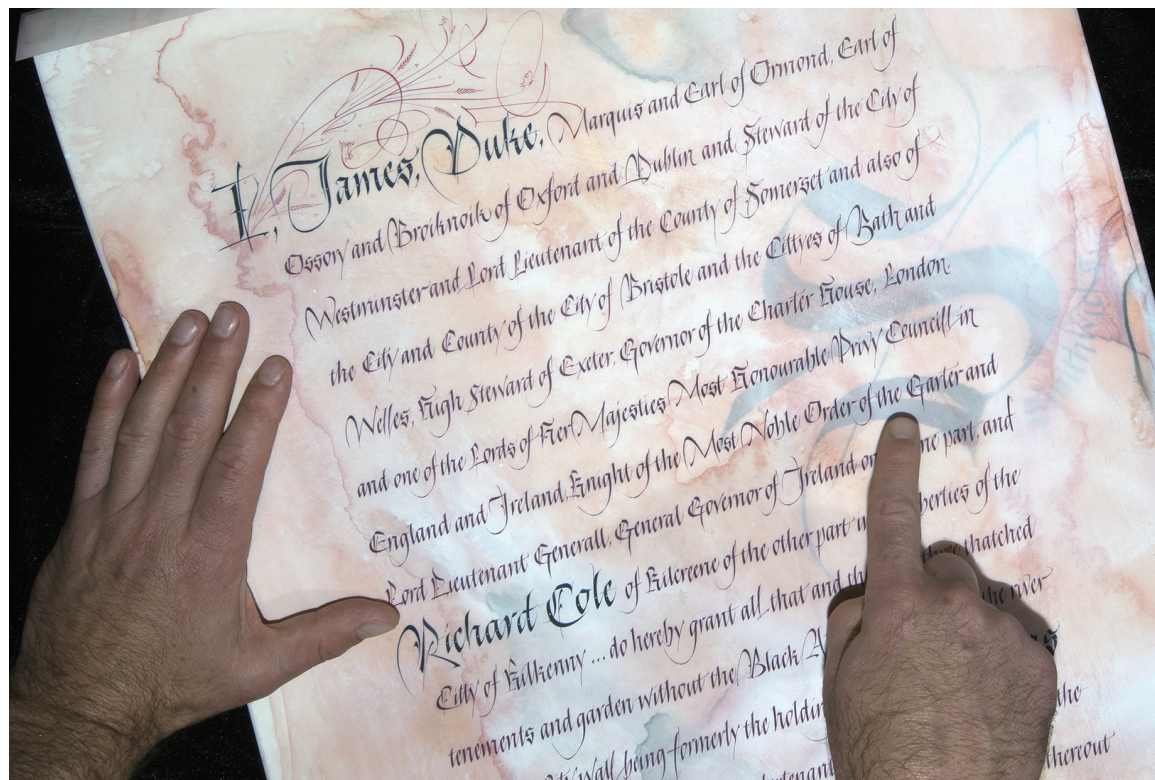 I, James, Duke, Marquis and Earl of Ormond, Earl of
Ossory and Broiknoik of Oxford and Dublin and Steward of the City of
Westminster and Lord Lieutenant of the County of Somerset and also of
the City and County of the City of Bristole and the Cittyes of Bath and
Welles, High Steward of Exeter, Governor of the Charter House, London
and one of the Lords of Her Majesties Most Honourable Privy Councill in
England and Ireland, Knight of the Most Noble Order of the Garter and
Lord Lieutenant Generall, General Governor of Ireland on ne part, and
Richard Cole of Kilcreene of the other part berties of the
Citty of Kilkenny ... do hereby grant all that and thatched
tenements and garden without the Black the river
Wall being formerly the
the
thereout